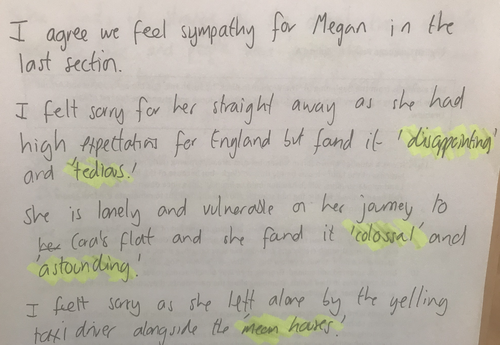 I agree we feel sympathy for Megan in the
last section.
I felt sorry for her straight away as she had
high expectations for England but fand it 'disappointing'
and 'tedious.'
She is lonely and vulnerable on her journey to
her Cara's flat and she fand it 'colossal' and
'astounding.'
I felt sorry as she left alone by the yelling
taxi driver alongside the 'mean houses.'